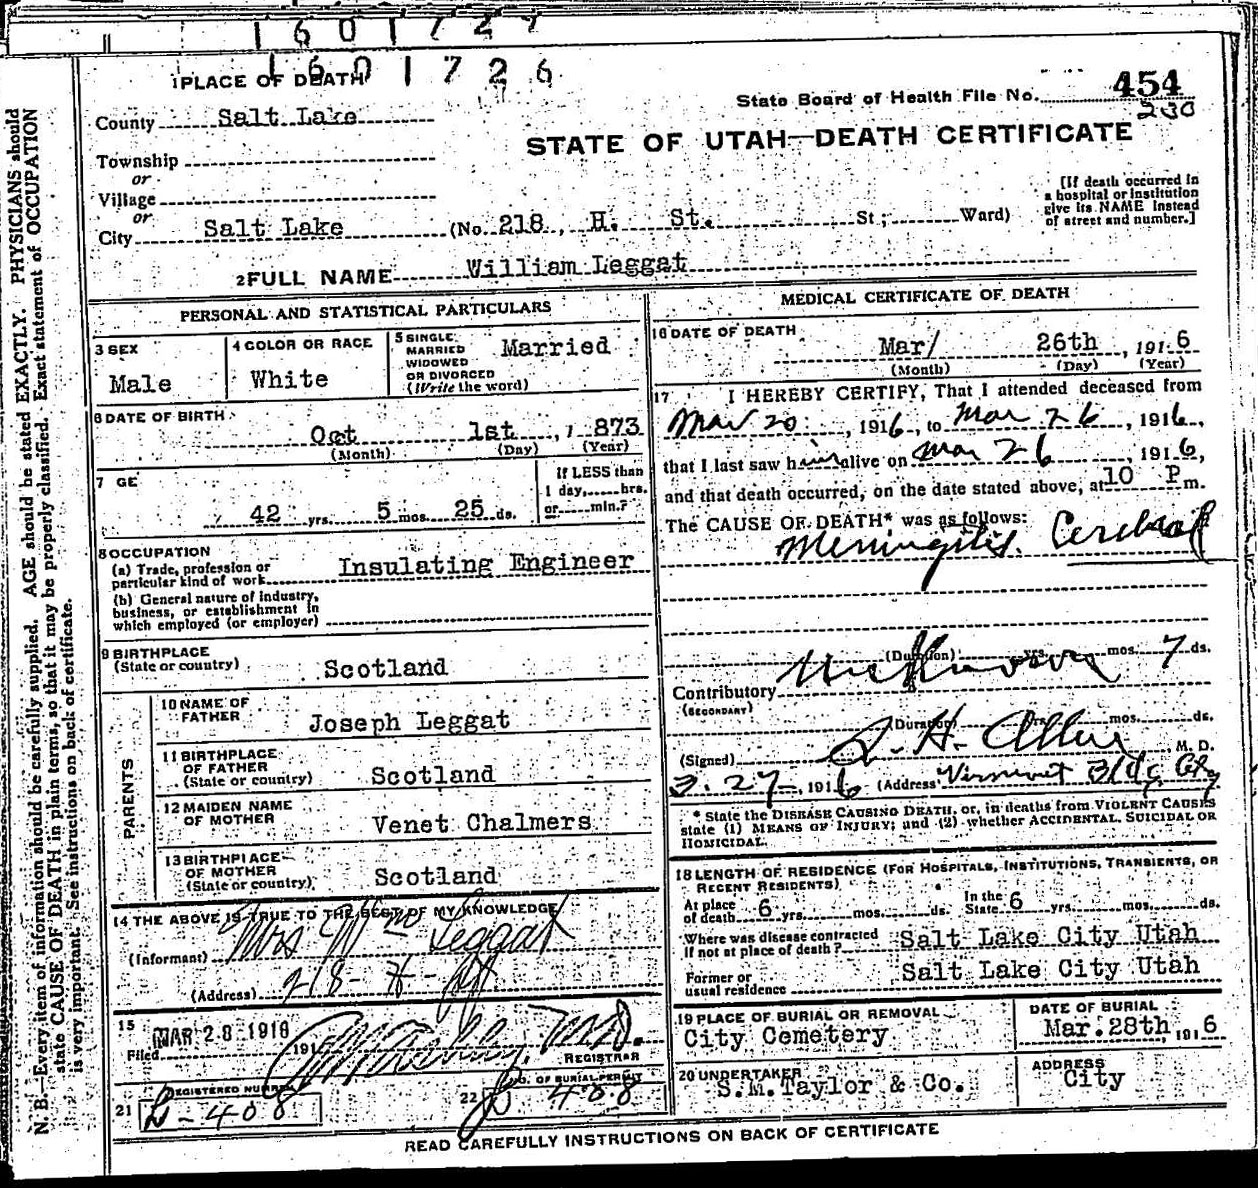 1601727
1601726
1 PLACE OF DEATH
State Board of Health File No. 454
230
County Salt Lake
STATE OF UTAH—DEATH CERTIFICATE
Township
or
Village
or
City Salt Lake (No. 218, H. St. St; Ward)
[If death occurred in
a hospital or institution
give its NAME instead
of street and number.]
2 FULL NAME William Leggat
PERSONAL AND STATISTICAL PARTICULARS
3 SEX
Male
4 COLOR OR RACE
White
5 SINGLE
MARRIED
WIDOWED
OR DIVORCED
(Write the word)
Married
6 DATE OF BIRTH
Oct 1st, 1873
(Month) (Day) (Year)
7 GE
42 yrs. 5 mos. 25 ds.
If LESS than
1 day, hrs.
or min.?
8 OCCUPATION
(a) Trade, profession or
particular kind of work Insulating Engineer
(b) General nature of industry,
business, or establishment in
which employed (or employer)
9 BIRTHPLACE
(State or country) Scotland
PARENTS
10 NAME OF
FATHER Joseph Leggat
11 BIRTHPLACE
OF FATHER
(State or country) Scotland
12 MAIDEN NAME
OF MOTHER Venet Chalmers
13 BIRTHPLACE
OF MOTHER
(State or country) Scotland
14 THE ABOVE IS TRUE TO THE BEST OF MY KNOWLEDGE
(Informant) Mrs Wm Leggat
(Address) 218 - H - St
15
Filed MAR 28 1916 191
M.D.
REGISTRAR
REGISTERED NUMBER
21 D-408
NO. OF BURIAL PERMIT
22 B 488
MEDICAL CERTIFICATE OF DEATH
16 DATE OF DEATH
Mar/ 26th, 1916
(Month) (Day) (Year)
17 I HEREBY CERTIFY, That I attended deceased from
Mar 20, 1916, to Mar 26, 1916,
that I last saw him alive on Mar 26, 1916,
and that death occurred, on the date stated above, at 10 P m.
The CAUSE OF DEATH* was as follows:
Meningitis. Cerebral
(Duration) yrs. mos. 7 ds.
Contributory Unknown
(SECONDARY)
(Duration) yrs. mos. ds.
(Signed) S. H. Allen, M. D.
3. 27, 1916 (Address Vermont Bldg City
* State the DISEASE CAUSING DEATH, or, in deaths from VIOLENT CAUSES
state (1) MEANS OF INJURY; and (2) whether ACCIDENTAL, SUICIDAL OR
HOMICIDAL.
18 LENGTH OF RESIDENCE (FOR HOSPITALS, INSTITUTIONS, TRANSIENTS, OR
RECENT RESIDENTS)
At place
of death 6 yrs. mos. ds.
In the
State 6 yrs. mos. ds.
Where was disease contracted
if not at place of death? Salt Lake City Utah
Former or
usual residence Salt Lake City Utah
19 PLACE OF BURIAL OR REMOVAL
City Cemetery
DATE OF BURIAL
Mar. 28th, 1916
20 UNDERTAKER
S.M. Taylor & Co.
ADDRESS
City
READ CAREFULLY INSTRUCTIONS ON BACK OF CERTIFICATE
N. B.—Every item of information should be carefully supplied. AGE should be stated EXACTLY. PHYSICIANS should
state CAUSE OF DEATH in plain terms, so that it may be properly classified. Exact statement of OCCUPATION
is very important. See instructions on back of certificate.